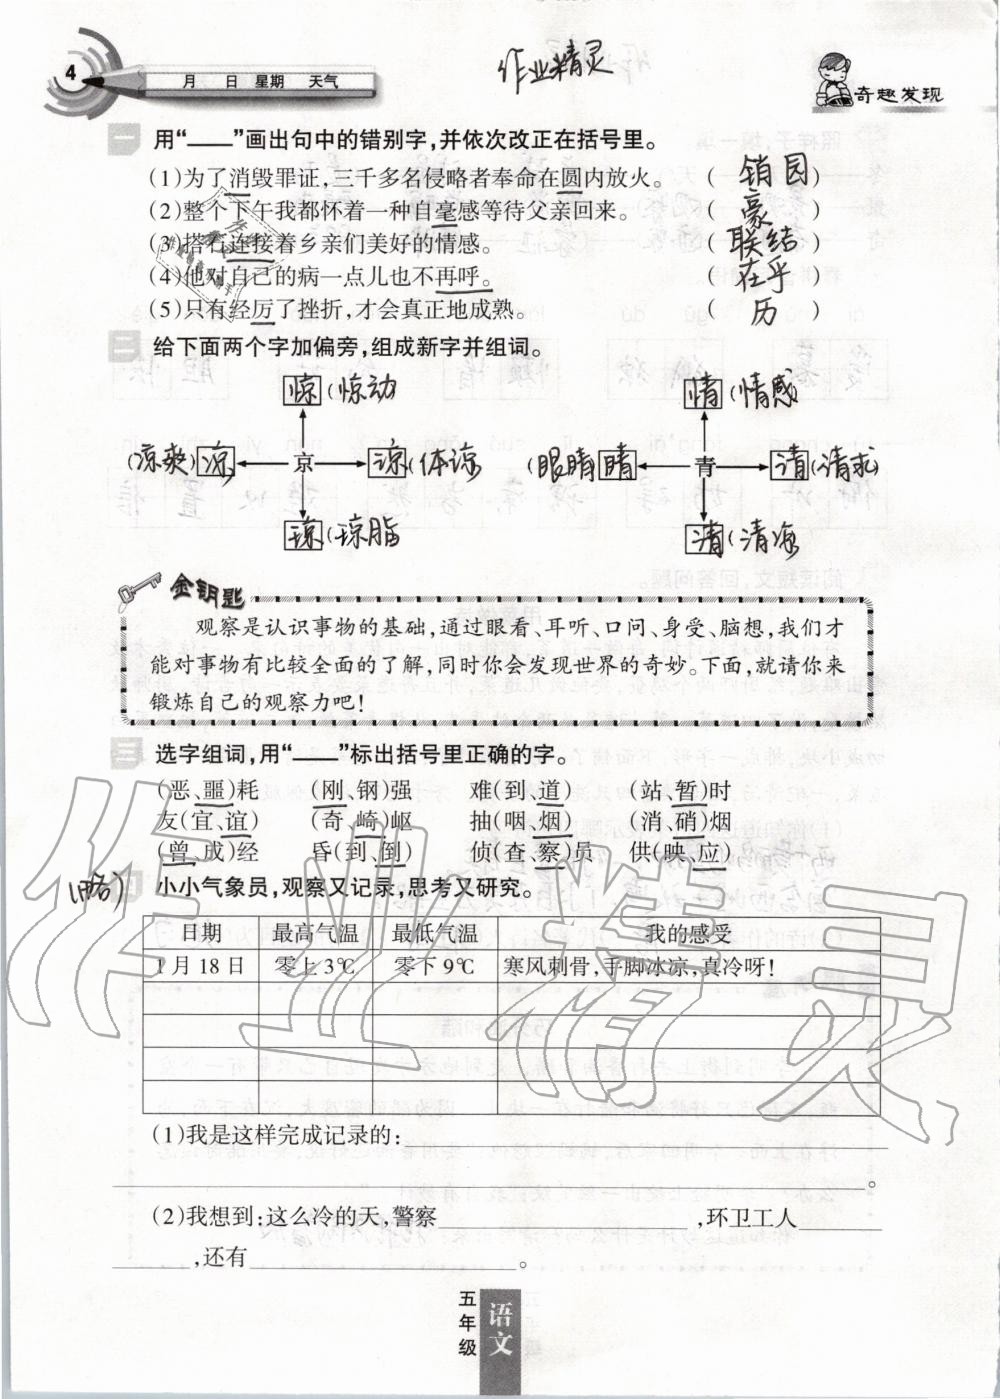 4
月 日 星期 天气
作业精灵
奇趣发现
一 用“____”画出句中的错别字,并依次改正在括号里。
(1)为了消毁罪证,三千多名侵略者奉命在圆内放火。 ( 销 园 )
(2)整个下午我都怀着一种自毫感等待父亲回来。 ( 豪 )
(3)搭石连接着乡亲们美好的情感。 ( 联结 )
(4)他对自己的病一点儿也不再呼。 ( 在乎 )
(5)只有经厉了挫折,才会真正地成熟。 ( 历 )
二 给下面两个字加偏旁,组成新字并组词。
惊(惊动 情(情感
(凉爽)凉 京 谅(体谅 (眼睛)睛 青 请(请求)
琼(琼脂 清(清海
金钥匙
观察是认识事物的基础,通过眼看、耳听、口问、身受、脑想,我们才
能对事物有比较全面的了解,同时你会发现世界的奇妙。下面,就请你来
锻炼自己的观察力吧!
三 选字组词,用“____”标出括号里正确的字。
(恶、噩)耗 (刚、钢)强 难(到、道) (站、暂)时
友(宜、谊) (奇、崎)岖 抽(咽、烟) (消、硝)烟
(曾、成)经 昏(到、倒) 侦(查、察)员 供(映、应)
(略) 四 小小气象员,观察又记录,思考又研究。
日期 最高气温 最低气温 我的感受
1月18日 零上3℃ 零下9℃ 寒风刺骨,手脚冰凉,真冷呀!
(1)我是这样完成记录的:____
____。
(2)我想到:这么冷的天,警察____,环卫工人____
____,还有____。
五年级
语文
作业精灵